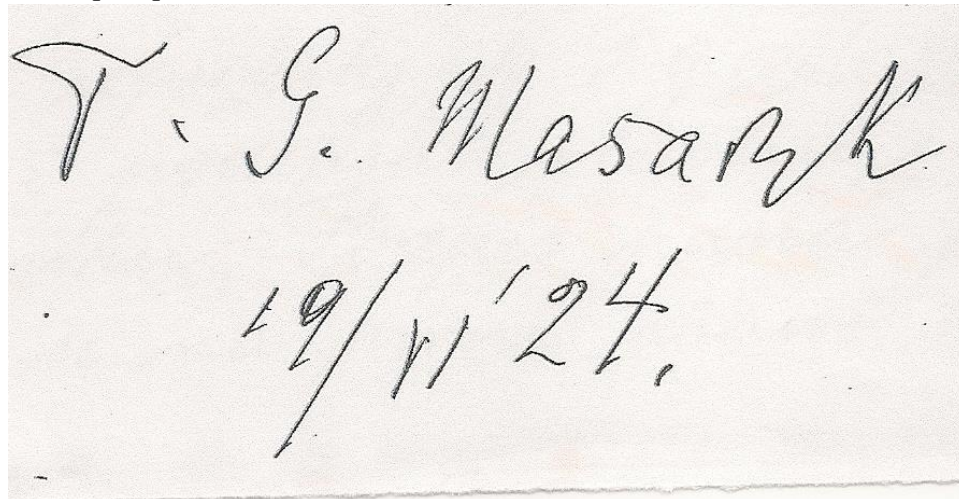 T. G. Masaryk
19/VI '24.